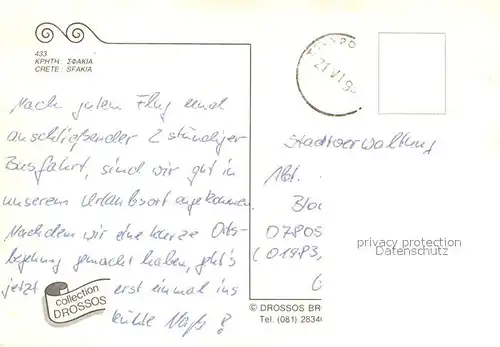 433
ΚΡΗΤΗ : ΣΦΑΚΙΑ
CRETE : SFAKIA
Nach gutem Flug und
anschließender 2 stündiger
Busfahrt, sind wir gut in
unserem Urlaubsort angekommen.
Nachdem wir eine kurze Orts-
begehung gemacht haben, geht's
jetzt erst einmal ins
kühle Naß!
collection
DROSSOS
21 VI 9
Stadtverwaltung
Abt.
Blo
07805
(01983,
privacy protection
Datenschutz
© DROSSOS BR
Tel. (081) 28340